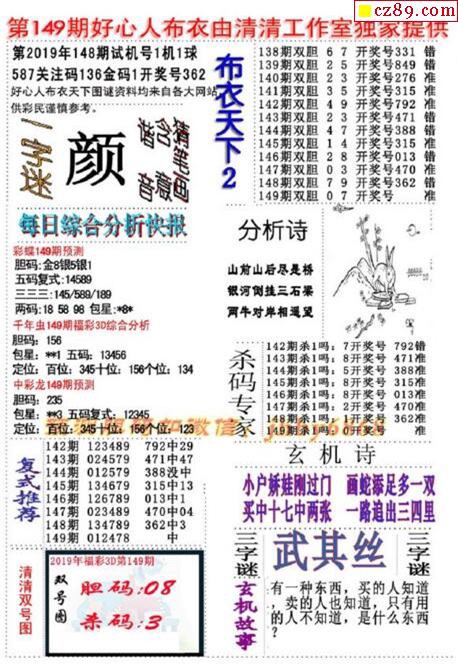 cz89.com
第149期好心人布衣由清清工作室独家提供
第2019年148期试机号1机1球
587关注码136金码1开奖号362
好心人布衣天下图谜资料均来自各大网站
供彩民谨慎参考。
布衣天下2
138期双胆 6 7 开奖号331 错
139期双胆 2 5 开奖号849 错
140期双胆 2 5 开奖号276 准
141期双胆 3 5 开奖号315 准
142期双胆 4 9 开奖号792 准
143期双胆 2 3 开奖号471 错
144期双胆 4 7 开奖号388 错
145期双胆 1 4 开奖号315 准
146期双胆 2 8 开奖号013 错
147期双胆 0 3 开奖号470 准
148期双胆 7 9 开奖号362 错
149期双胆 0 7 开奖号
一字谜
颜
猜笔画
含意
谐音
每日综合分析快报
彩蝶149期预测
胆码:金8银5铜1
五码复式:14589
三三三:145/589/189
两码:18 58 98 包星:*8*
千年虫149期福彩3D综合分析
胆码: 156
包星: **1 五码: 13456
定位: 百位: 345十位: 156个位: 134
中彩龙149期预测
胆码: 235
包星: **3 五码复式: 12345
定位: 百位: 345十位: 156个位: 123
分析诗
山前山后尽是桥
银河倒挂三石梁
两牛对岸相遥望
杀码专家
142期杀1吗: 7开奖号 792错
143期杀1吗: 8开奖号 471准
144期杀1吗: 5开奖号 388准
145期杀1吗: 8开奖号 315准
146期杀1吗: 8开奖号 013准
147期杀1吗: 5开奖号 470准
148期杀1吗: 1开奖号 362准
复式推荐
142期 123489 792中29
143期 024579 471中47
144期 024579 388没中
145期 134679 315中13
146期 126789 013中1
147期 023489 470中04
148期 134789 362中3
149期 012478 中
玄机诗
小户娇娃刚过门 画蛇添足多一双
买中十七中两张 一路追出三四里
三字谜
武其丝
三字谜
清清双号图
2019年福彩3D第149期
双号图
胆码:08
杀码:3
玄机故事
有一种东西，买的人知道
，卖的人也知道，只有用
的人不知道，是什么东西
？